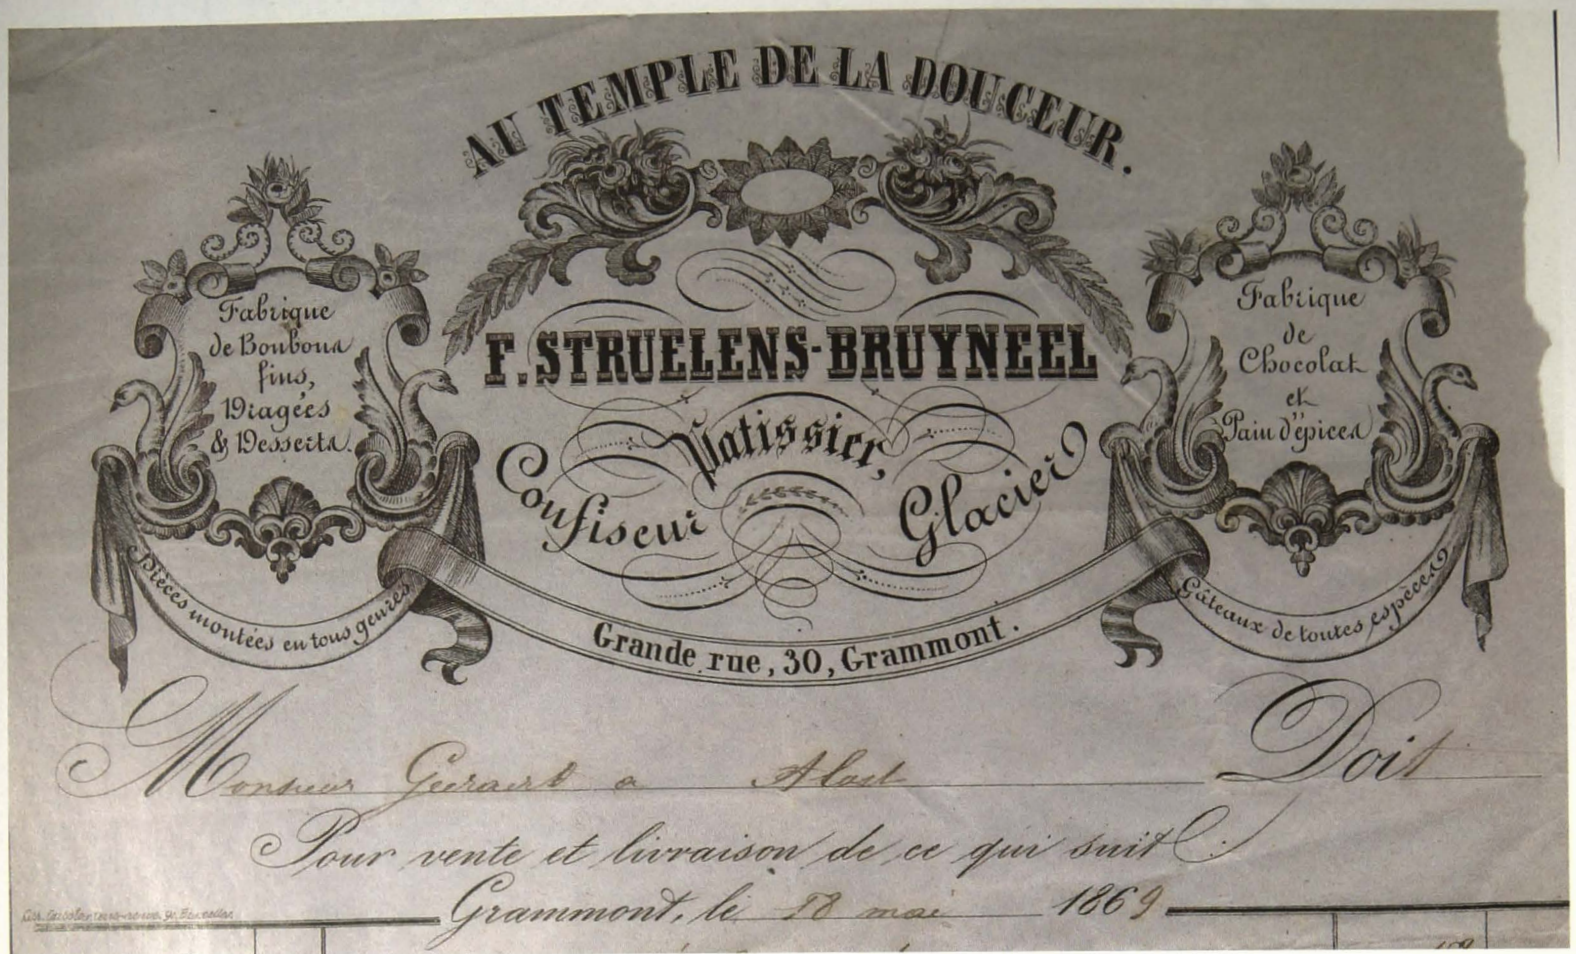 AU TEMPLE DE LA DOUCEUR.
Fabrique
de Bonbons
fins,
Dragées
& Desserts.
Pièces montées en tous genres
F. STRUELENS-BRUYNEEL
Patissier,
Confiseur
Glacier
Grande rue, 30, Grammont.
Fabrique
de
Chocolat
et
Pain d'épices
Gâteaux de toutes espèces
Monsieur Geeraert a Alost Doit
Pour vente et livraison de ce qui suit :
Grammont, le 18 mai 1869